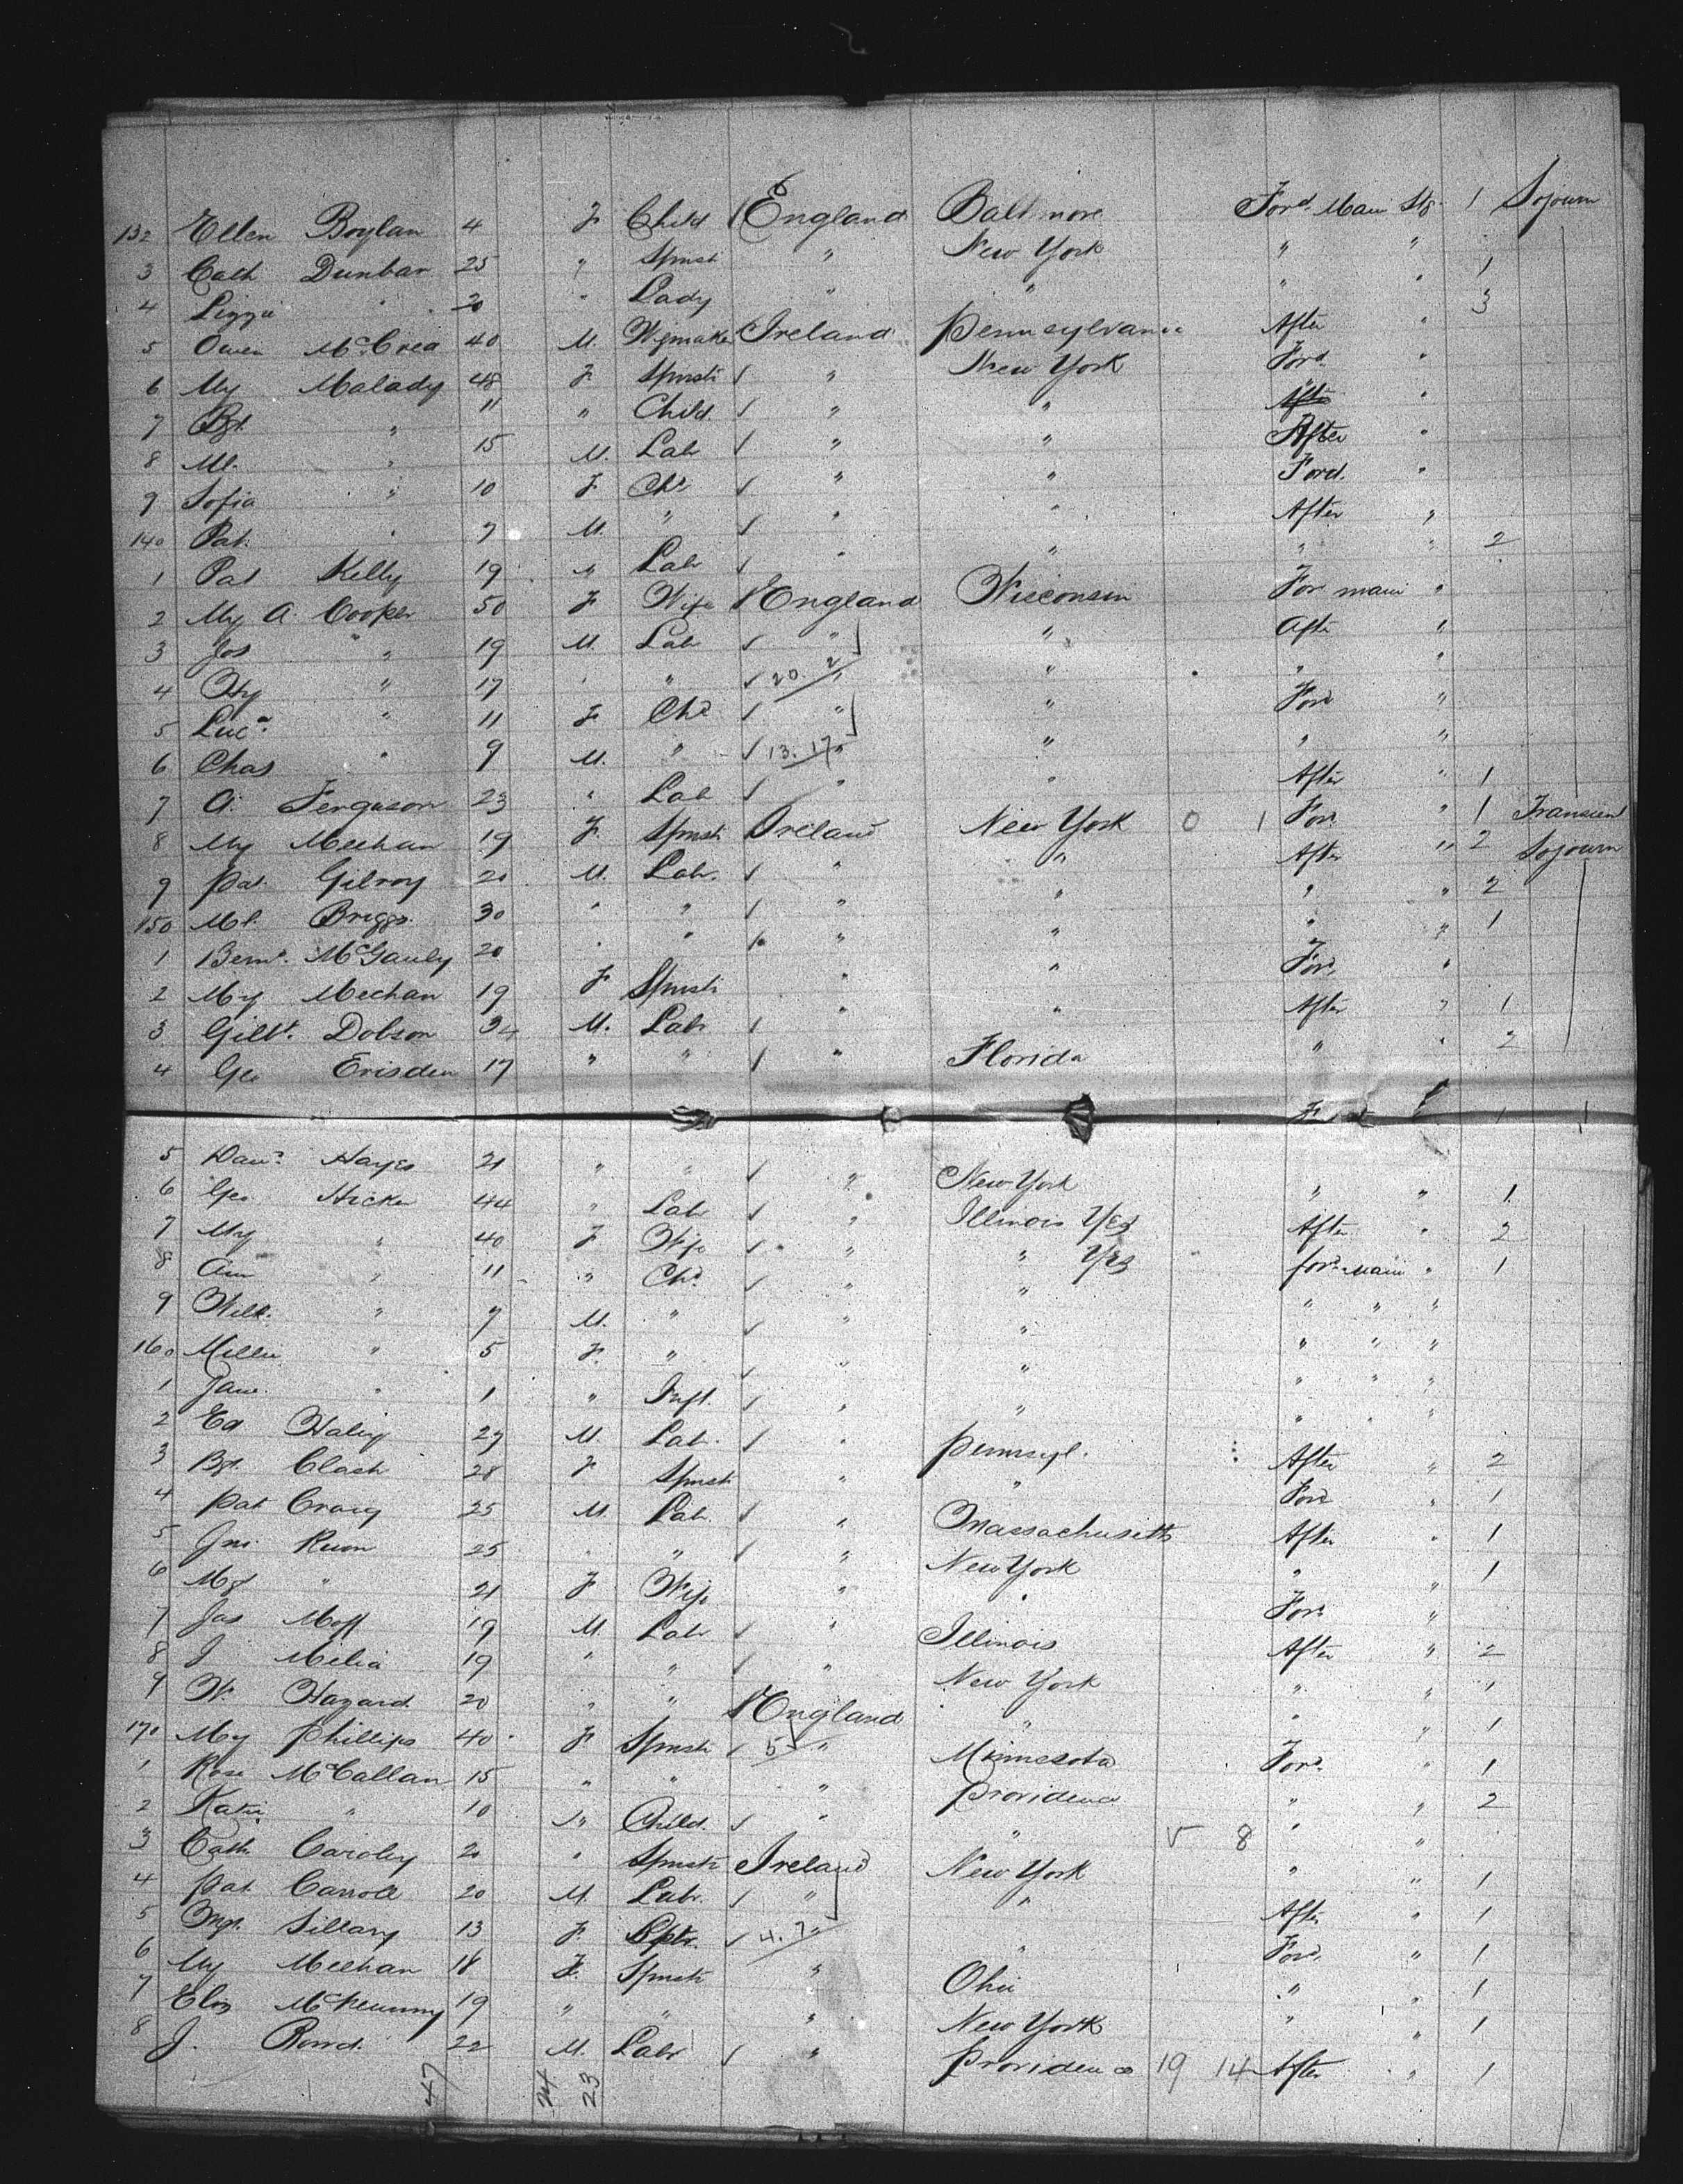 132 Ellen Boylan 4 F Child England Baltimore Ford Main Stg. 1 Sojourn
3 Cath Dunbar 25 " Spnst " New York " " 1
4 Lizzie " 20 " Lady " " " " 3
5 Owen McCrea 40 M. Ireland Pennsylvania After "
6 My Malady 48 F Spnstr " New York Ford. "
7 Bgt. " 11 " Child. " " After "
8 Ml. " 15 M. Lab " " After "
9 Sofia " 10 F Chd " " Ford. "
140 Pat. " 7 M. " " " After "
1 Pat Kelly 19 " Labr " " " " 2
2 My A. Cooper 50 F Wife England Wisconsin For main "
3 Jos " 19 M. Lab " " Aft "
4 Hy " 17 " " 20. 2 " " " "
5 Luca " 11 F Chd " " Ford "
6 Chas " 9 M. " 13. 17 " " " "
7 A. Ferguson 23 " Lab " " After " 1
8 My Meehan 19 F. Spnstr Ireland New York 0 1 For. " 1 Transient
9 Pat. Gilroy 20 M. Labr. " " After " 2 Sojourn
150 Ml. Briggs. 30 " " " " " " 2
1 Bernd. McGauly 20 " " " " " " 1
2 My Meehan 19 F Spnstr " " For. "
3 Gilbt. Dobson 34 M. Labr " " After " 1
4 Geo Erisden 17 " " " Florida " " 2
5 Danl. Hayes 21 " " " New York 1
6 Geo. Hicken 44 " Labr " Illinois Yes " " 1
7 My " 40 F Wife " " Yes After " 2
8 Ann " 11 " Chd. " " ford main " 1
9 Willm. " 7 M. " " " " " "
160 Millie " 5 F. " " " " " "
1 Jane. " 1 " Inft. " " " " "
2 Ed Haley 27 M Lab. " Pennsyl. " " "
3 Bgt. Clash 28 F Spnstr " " After " 2
4 Pat Craig 25 M Lab. " Massachusetts Ford " 1
5 Jno. 25 " " " New York After " 1
6 Mgt " 21 F Wife " " " " 1
7 Jas Moff 19 M Labr " Illinois For. "
8 J Melia 19 " " " New York After " 2
9 W. Hazard. 20 " " England " " " 1
170 My Phillips 40 F Spnstr 5 " Minnesota " " 1
1 Rose McCallan 15 " " " Providence For. " 1
2 Katie. " 10 " Child. " " " " 2
3 Cath. Caroley 20 " Spnstr Ireland New York 8 " "
4 Pat. Carroll 20 M. Labr. " " " " 1
5 Mgt. Sillary 13 F 4. 7 " " After " 1
6 My Meehan 18 F. Spnstr " Ohio Ford. " 1
7 Eliz McKenny 19 " " " New York " " 1
8 J. Bond. 22 M. Labr " Providence 19 14 After " 1
47 24 23